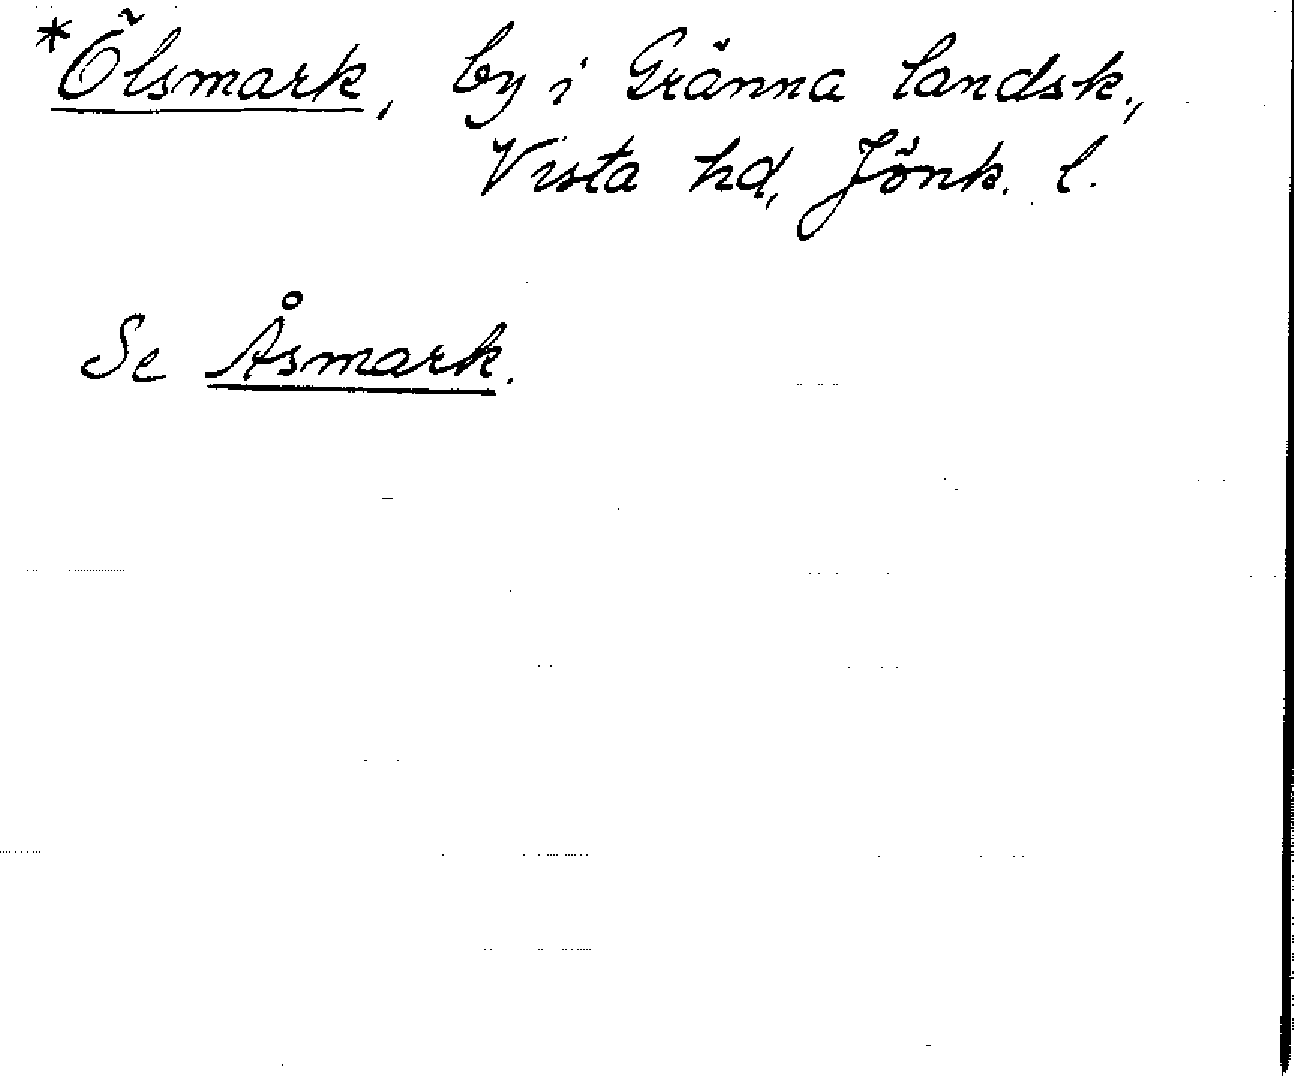 *Ölsmark, by i Gränna landsk.,
Vista hd, Jönk. l.
Se Åsmark.